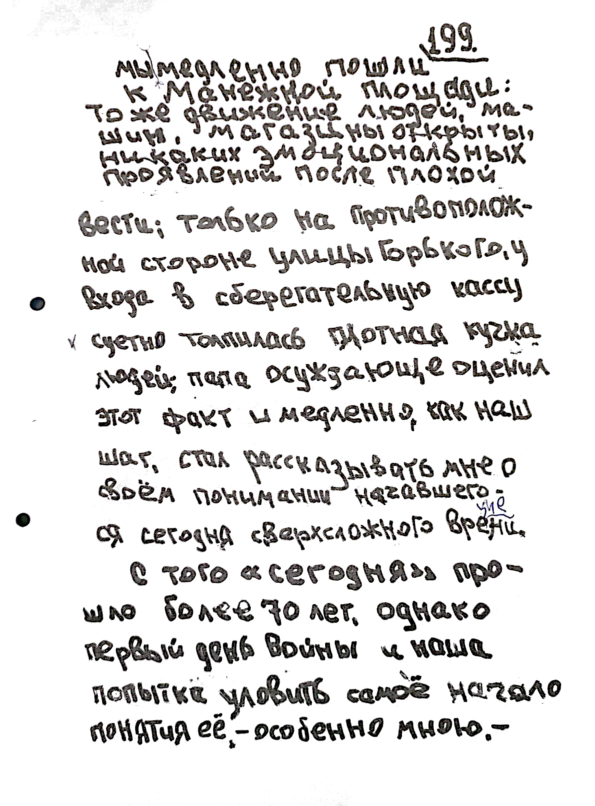 199.
мы медленно пошли
к Манежной площади:
то же движение людей, ма-
шин, магазины открыты,
никаких эмоциональных
проявлений после плохой
вести; только на противополож-
ной стороне улицы Горького, у
входа в сберегательную кассу
суетно толпилась плотная кучка
людей; папа осуждающе оценил
этот факт и медленно, как наш
шаг, стал рассказывать мне о
своём понимании начавшего-
ся сегодня сверхсложного времени.
С того «сегодня» про-
шло более 70 лет, однако
первый день войны и наша
попытка уловить самоё начало
понятия её, – особенно мною, –